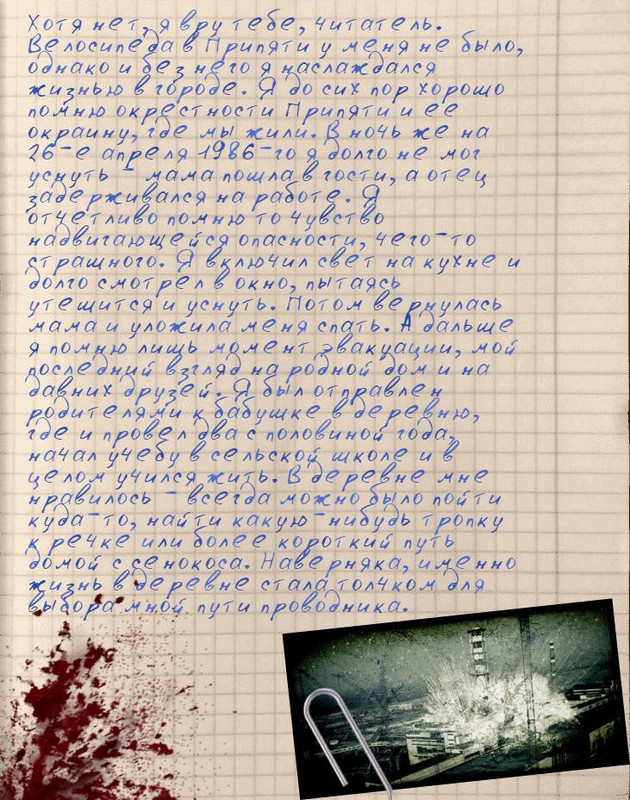 Хотя нет, я вру тебе, читатель.
Велосипеда в Припяти у меня не было,
однако и без него я наслаждался
жизнью в городе. Я до сих пор хорошо
помню окрестности Припяти и ее
окраину, где мы жили. В ночь же на
26-е апреля 1986-го я долго не мог
уснуть - мама пошла в гости, а отец
задерживался на работе. Я
отчетливо помню то чувство
надвигающейся опасности, чего-то
страшного. Я включил свет на кухне и
долго смотрел в окно, пытаясь
утещится и уснуть. Потом вернулась
мама и уложила меня спать. А дальше
я помню лишь момент эвакуации, мой
последний взгляд на родной дом и на
давних друзей. Я был отправлен
родителями к бабушке в деревню,
где и провел два с половиной года,
начал учебу в сельской школе и в
целом учился жить. В деревне мне
нравилось - всегда можно было пойти
куда-то, найти какую-нибудь тропку
к речке или более короткий путь
домой с сенокоса. Наверняка, именно
жизнь в деревне стала толчком для
выбора мной пути проводника.